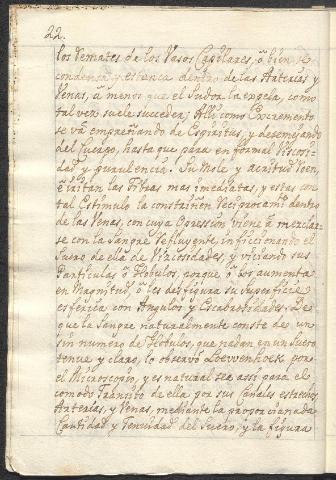 22.
los remates de los Vasos Capilares, ò bien se
condensa, y estanca dentro de las Arterias y
Venas, à menos que el Sudor la expela, como
tal vez suele suceder; Alli como Excremento
se và empreñando de Espiritus, y desemejando
del Suero, hasta que para en formal Viscosi-
dad y purulencia. Su Mole y acritud
irritan las Fibras mas imediatas, y estas con
tal Estimulo la constriñen reciprocamte dentro
de las Venas, con cuya Opression viene à mezclar-
se con la Sangre refluyente, inficionando el
Suero de ella de Viziosidades, y viciando sus
Particulas ò Globulos, porque ò los aumenta
en Magnitud, ò les desfigura su Superficie
esferica con Angulos y Escabrosidades. De
que la Sangre naturalmente conste de un
sin numero de Globulos, que nadan en un Suero
tenue y claro, lo observò Loevvenhoek por
el Microscopio, y es natural sea assi para el
comodo Transito de ella por sus Canales estrechos
Arterias, y Venas, mediante la proporcionada
Cantidad y Tenuidad del Suero, y la figura